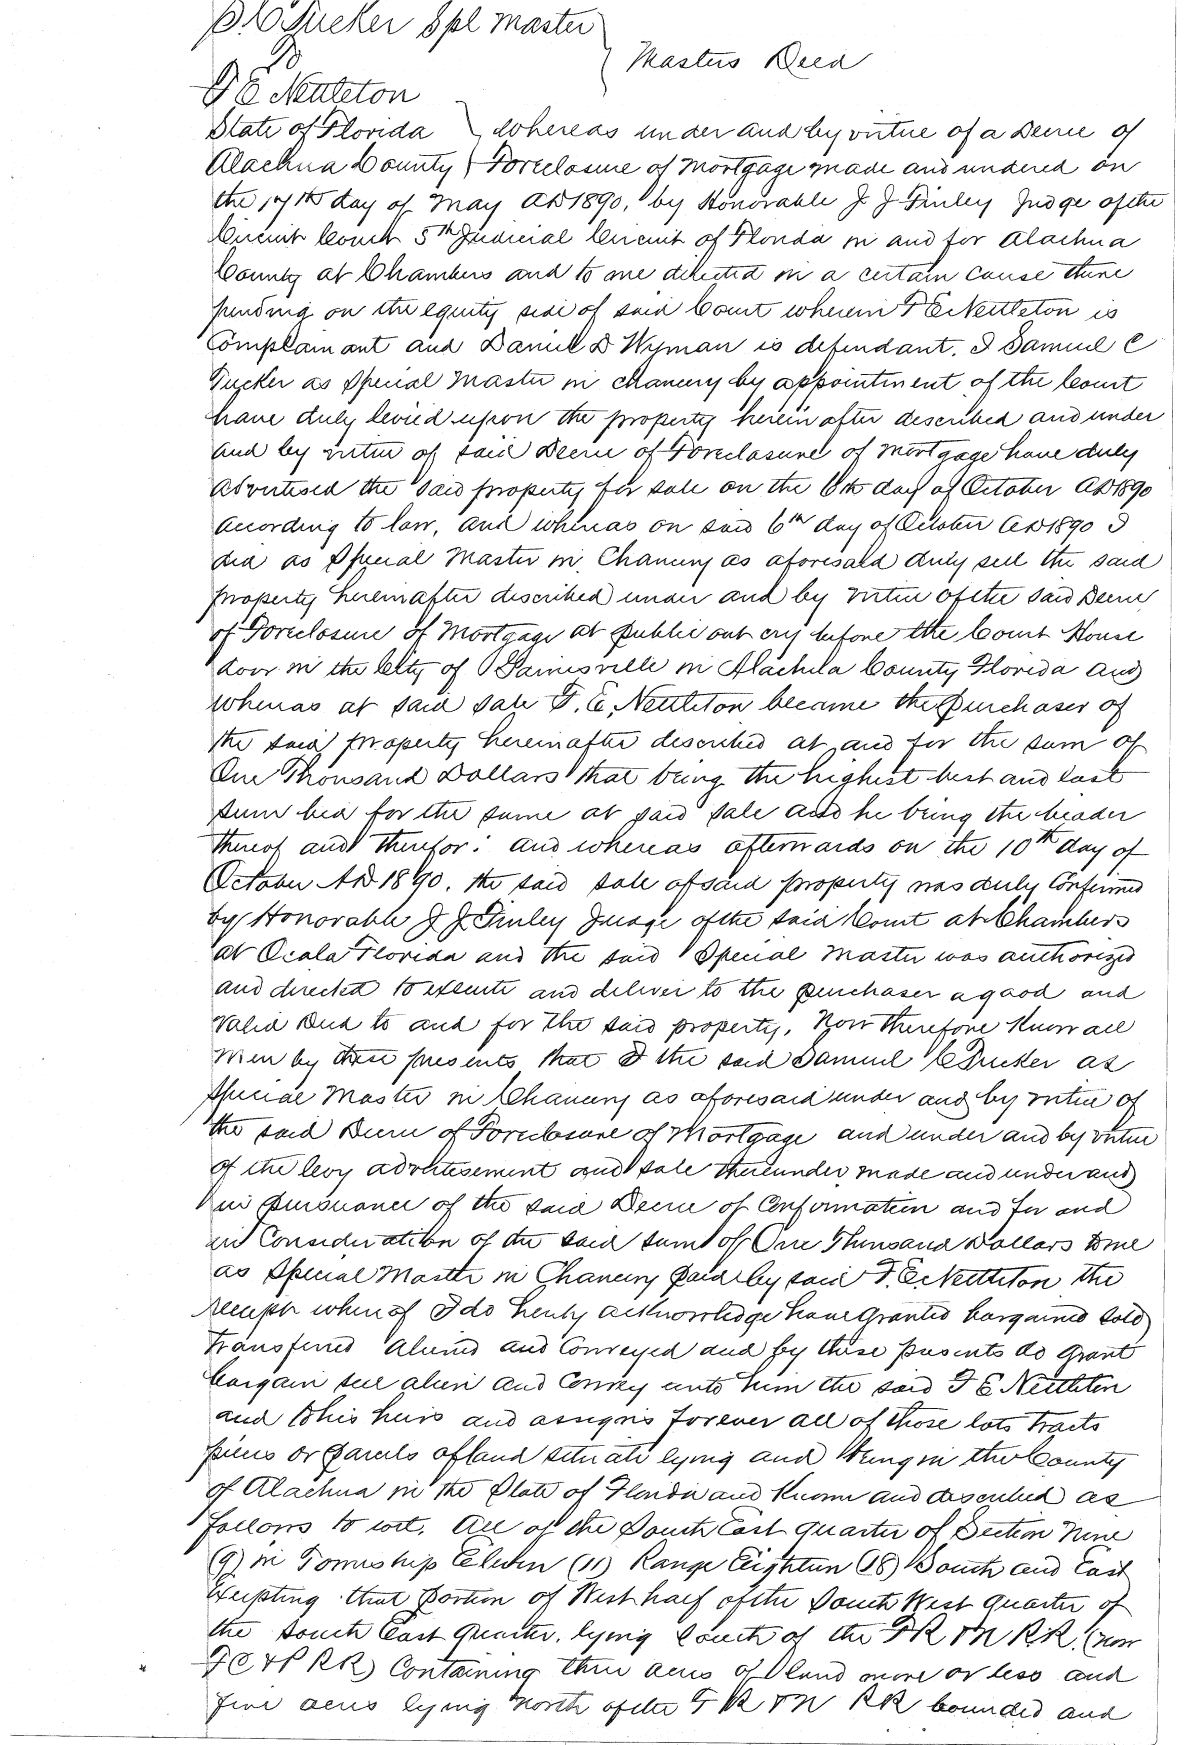 S C Tucker Spl Master
Masters Deed
To
T E Nettleton
State of Florida } Whereas under and by virtue of a Decree of
Alachua County } Foreclosure of Mortgage made and rendered on
the 17th day of May AD 1890, by Honorable J J Finley Judge of the
Circuit Court 5th Judicial Circuit of Florida in and for Alachua
County at Chambers and to me directed in a certain cause there
pending on the equity side of said Court wherein T E Nettleton is
Complainant and Daniel D Wyman is defendant. I Samuel C
Tucker as Special Master in chancery by appointment of the Court
have duly levied upon the property herein after described and under
and by virtue of said Decree of Foreclosure of Mortgage have duly
advertised the said property for sale on the 6th day of October AD 1890
according to law, and whereas on said 6th day of October AD 1890 I
did as Special Master in Chancery as aforesaid duly sell the said
property hereinafter described under and by virtue of the said Decree
of Foreclosure of Mortgage at public out cry before the Court House
door in the City of Gainesville in Alachua County Florida and
whereas at said sale T. E. Nettleton became the purchaser of
the said property hereinafter described at and for the sum of
One Thousand Dollars that being the highest best and last
sum bid for the same at said sale and he being the bidder
thereof and therefor: and whereas afterwards on the 10th day of
October AD 1890. the said sale of said property was duly Confirmed
by Honorable J J Finley Judge of the said Court at Chambers
at Ocala Florida and the said Special Master was authorized
and directed to execute and deliver to the purchaser a good and
valid Deed to and for the said property. Now therefore Know all
Men by these presents that I the said Samuel C Tucker as
Special Master in Chancery as aforesaid under and by virtue of
the said Decree of Foreclosure of Mortgage and under and by virtue
of the levy advertisement and sale thereunder made and under and
in pursuance of the said Decree of Confirmation and for and
in Consideration of the said sum of One Thousand Dollars to me
as Special Master in Chancery paid by said T. E. Nettleton the
receipt whereof I do hereby acknowledge have Granted bargained sold
transferred aliened and Conveyed and by these presents do grant
bargain sell alien and Convey unto him the said T E Nettleton
and to his heirs and assigns forever all of those lots tracts
pieces or parcels of land situate lying and being in the County
of Alachua in the State of Florida and Known and described as
follows to wit. All of the South East quarter of Section Nine
(9) in Township Eleven (11) Range Eighteen (18) South and East
Excepting that portion of West half of the South West Quarter of
the South East Quarter. lying South of the F R & N R R. (now
F C & P RR) Containing three acres of land more or less and
five acres lying North of the F R & N RR bounded and